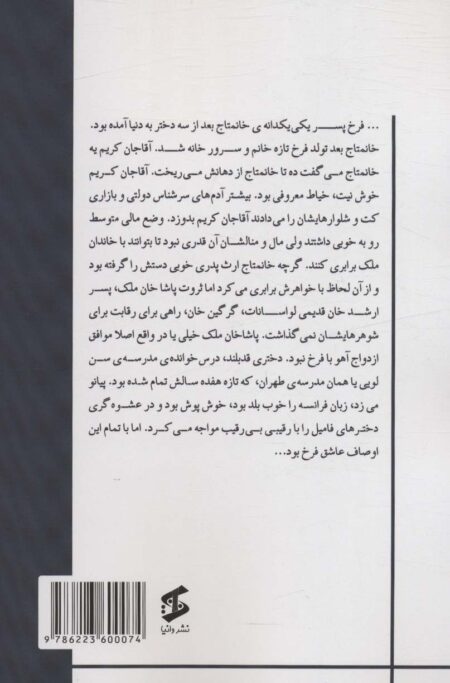 ... فرخ پسر یکی یکدانه ی خانمتاج بعد از سه دختر به دنیا آمده بود.
خانمتاج بعد تولد فرخ تازه خانم و سرور خانه شد. آقاجان کریم یه
خانمتاج می گفت ده تا خانمتاج از دهانش می ریخت. آقاجان کریم
خوش نیت، خیاط معروفی بود. بیشتر آدم های سرشناس دولتی و بازاری
کت و شلوارهایشان را می دادند آقاجان کریم بدوزد. وضع مالی متوسط
رو به خوبی داشتند ولی مال و منالشان آن قدری نبود تا بتوانند با خاندان
ملک برابری کنند. گرچه خانمتاج ارث پدری خوبی دستش را گرفته بود
و از آن لحاظ با خواهرش برابری می کرد اما ثروت پاشا خان ملک، پسر
ارشد خان قدیمی لواسانات، گرگین خان، راهی برای رقابت برای
شوهرهایشان نمی گذاشت. پاشاخان ملک خیلی یا در واقع اصلا موافق
ازدواج آهو با فرخ نبود. دختری قدبلند، درس خوانده ی مدرسه ی سن
لویی یا همان مدرسه ی طهران، که تازه هفده سالش تمام شده بود. پیانو
می زد، زبان فرانسه را خوب بلد بود، خوش پوش بود و در عشوه گری
دخترهای فامیل را با رقیبی بی رقیب مواجه می کرد. اما با تمام این
اوصاف عاشق فرخ بود...
نشر وانیا
9 786223 600074